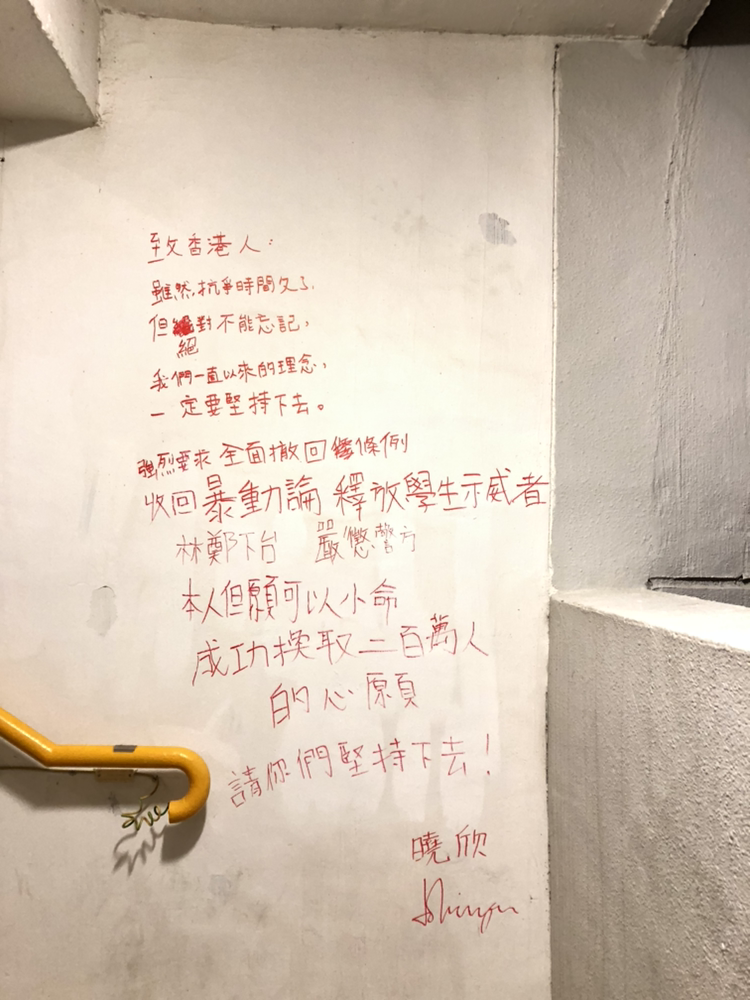 致香港人：
雖然,抗爭時間久了,
但絕對不能忘記,
我們一直以來的理念,
一定要堅持下去。
強烈要求 全面撤回條例
收回暴動論 釋放學生示威者
林鄭下台 嚴懲警方
本人但願可以小命
成功換取二百萬人
的心願
請你們堅持下去！
曉欣